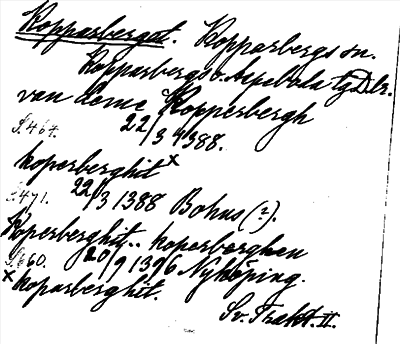 Kopparberget. Kopparbergs sn.
Kopparbergs o. Aspeboda tg Dlr.
van deme Kopperbergh
S. 464. 22/3 1388.
koperberghit x
S. 471. 22/3 1388 Bohus (?).
Koperberghit.. koperberghen
S. 660. 20/9 1396 Nyköping.
x koparberghit.
Sv. Trakt. II.